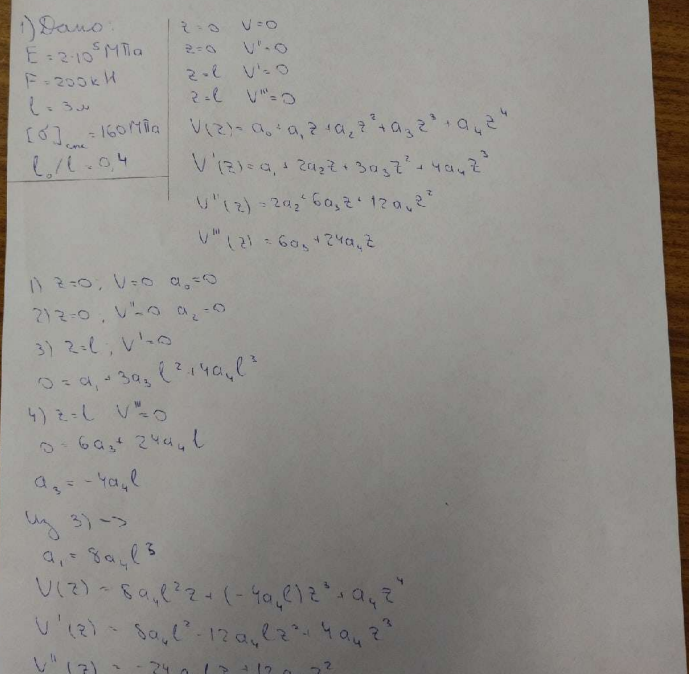 1) Дано:
E = 2·10⁵ МПа
F = 200 кН
l = 3 м
[σ]сж = 160 МПа
l₀/l = 0,4
z=0 V=0
z=0 V''=0
z=l V'=0
z=l V'''=0
V(z) = a₀ + a₁z + a₂z² + a₃z³ + a₄z⁴
V'(z) = a₁ + 2a₂z + 3a₃z² + 4a₄z³
V''(z) = 2a₂ + 6a₃z + 12a₄z²
V'''(z) = 6a₃ + 24a₄z
1) z=0; V=0 a₀=0
2) z=0; V''=0 a₂=0
3) z=l; V'=0
0 = a₁ + 3a₃l² + 4a₄l³
4) z=l V'''=0
0 = 6a₃ + 24a₄l
a₃ = -4a₄l
Из 3) ->
a₁ = 8a₄l³
V(z) = 8a₄l²z + (-4a₄l)z³ + a₄z⁴
V'(z) = 8a₄l² - 12a₄lz² + 4a₄z³
V''(z) = -24a₄lz + 12a₄z²